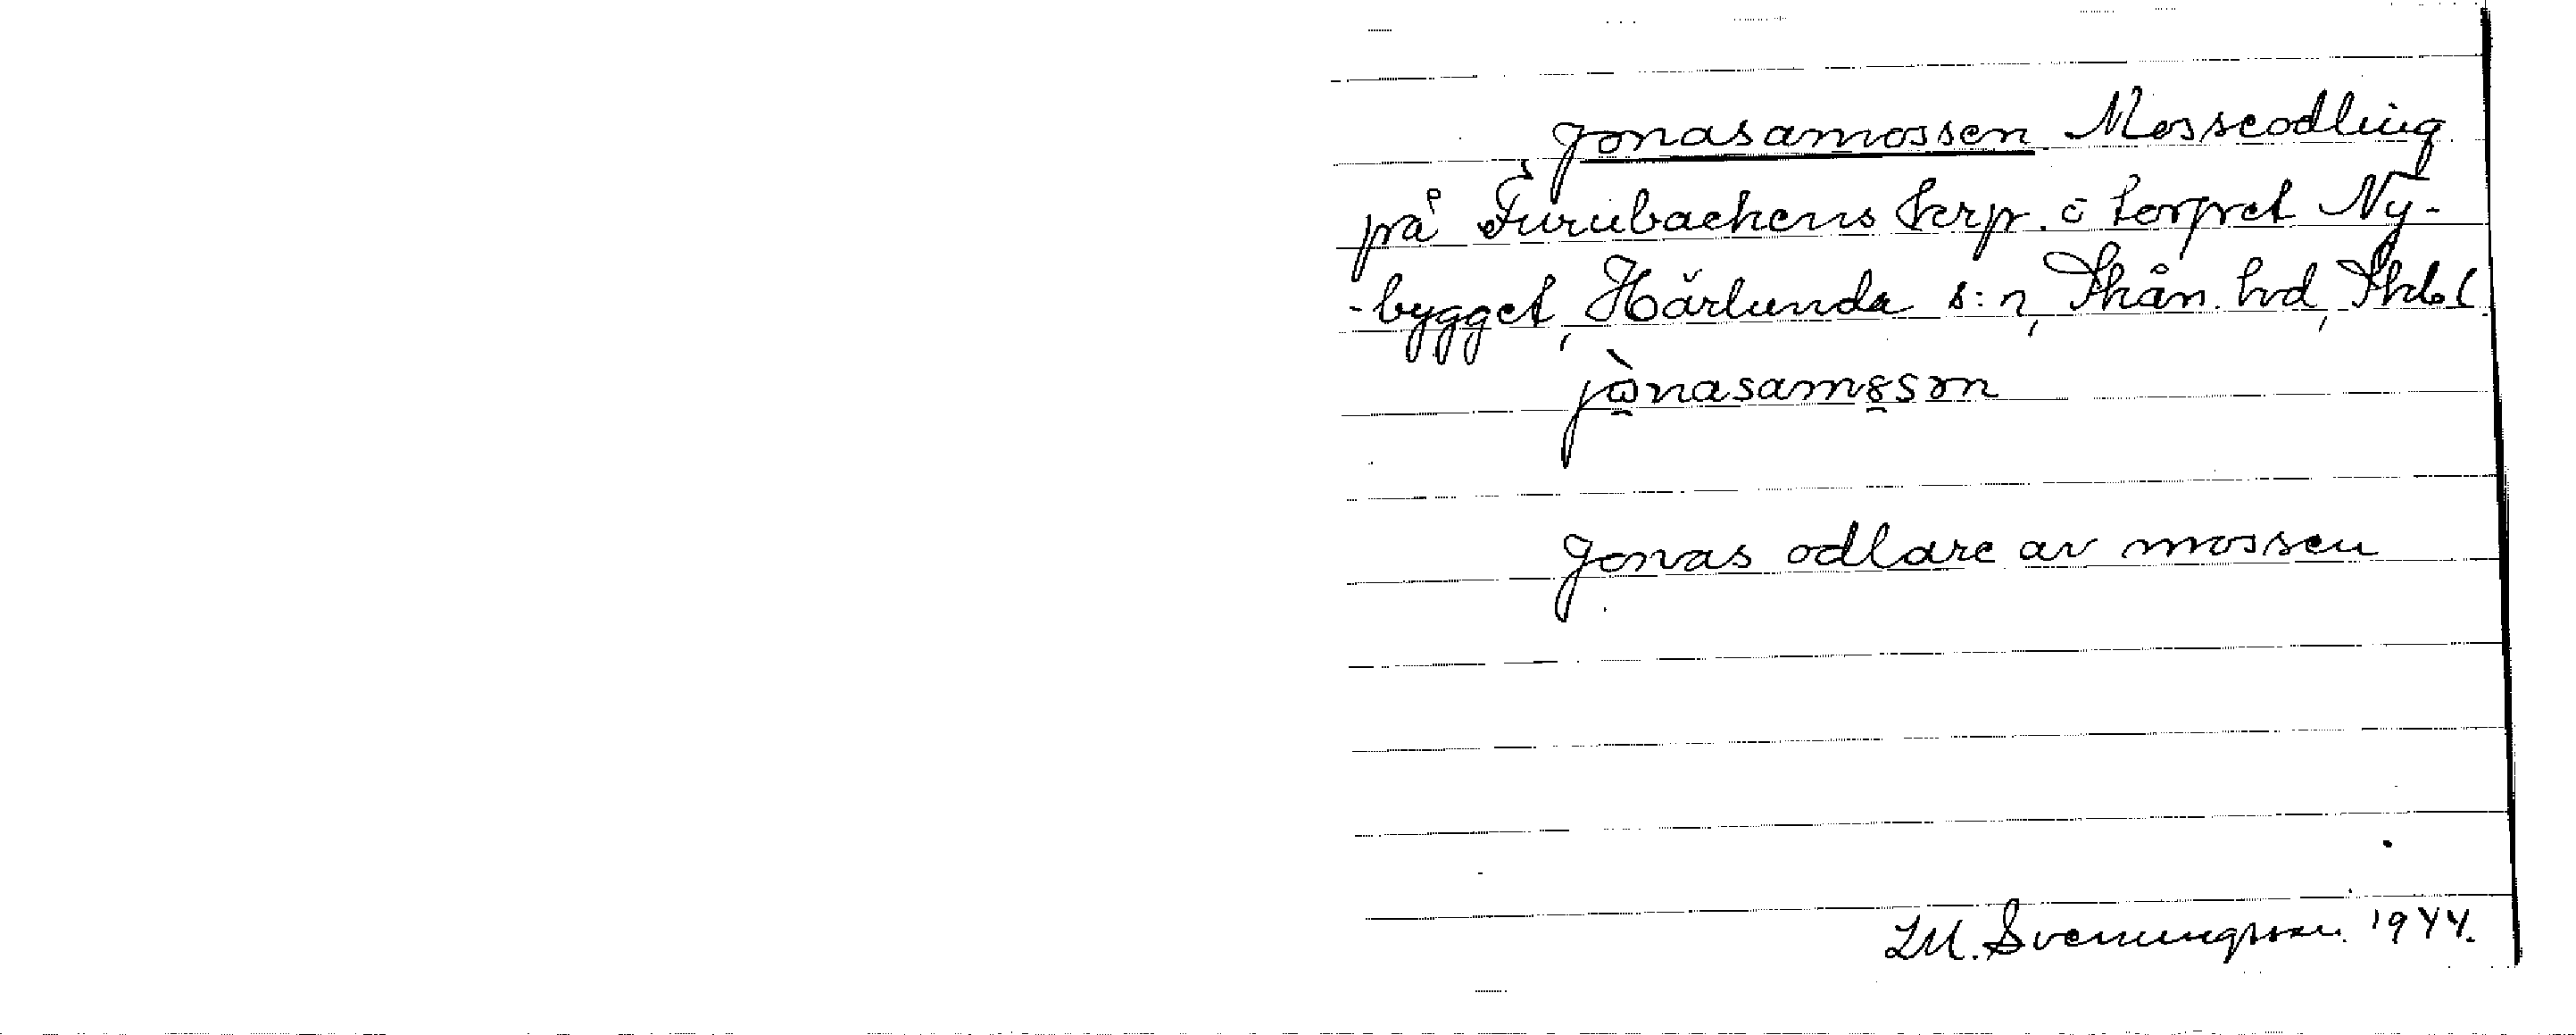 Jonasamossen Mosseodling
på Furubackens terr. ö torpet Ny-
-bygget, Härlunda s:n, Skån. hd, Skbl.
jònasamssən
Jonas odlare av mossen
I.M. Svenningsson. 1944.